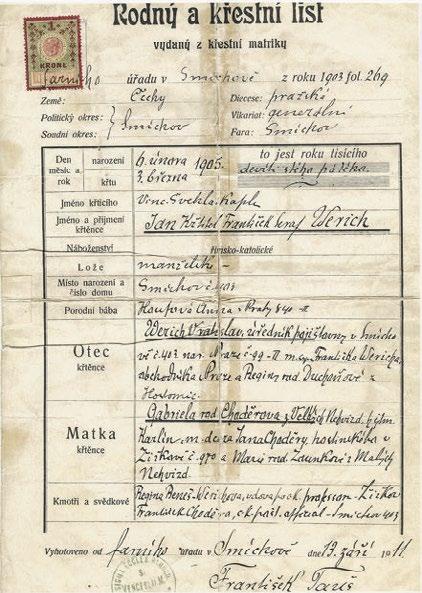 KRONE
Rodný a křestní list
vydaný z křestní matriky
farního úřadu v Smíchově z roku 1903 fol. 269
Země: Čechy Diecese: pražské
Politický okres: } Smíchov Vikariat: generální
Soudní okres: Fara: Smíchov
Den měsíc a rok narození 6. února 1905. to jest roku tisícího
křtu 3. března devítistého pátého.
Jméno křtícího Kapl.
Jméno a příjmení křtěnce Jan Křtitel František Seraf Werich
Náboženství římsko-katolické
Lože manželské
Místo narození a číslo domu Smíchov č 403
Porodní bába Anna z Prahy 840-II
Otec křtěnce Werich Vratislav, úředník pojišťovny v Smíchově
č. 403 nar. v Praze č 99-II m. syn Františka Wericha,
obchodníka v Praze a Reginy rod Duchoňové z
Hostomic.
Matka křtěnce Gabriela rod Choděrova z Velkých Nehvizd,
Karlín, m. dcera Jana Choděry, hostinského v
Žižkově č. 970 a Marie rod Zdeňkové z Malých
Nehvizd.
Kmotři a svědkové Regina Werichova, vdova po professoru Žižkov
František Choděra, official - Smíchov 403
Vyhotoveno od farního úřadu v Smíchově dne 19. září 1911
František